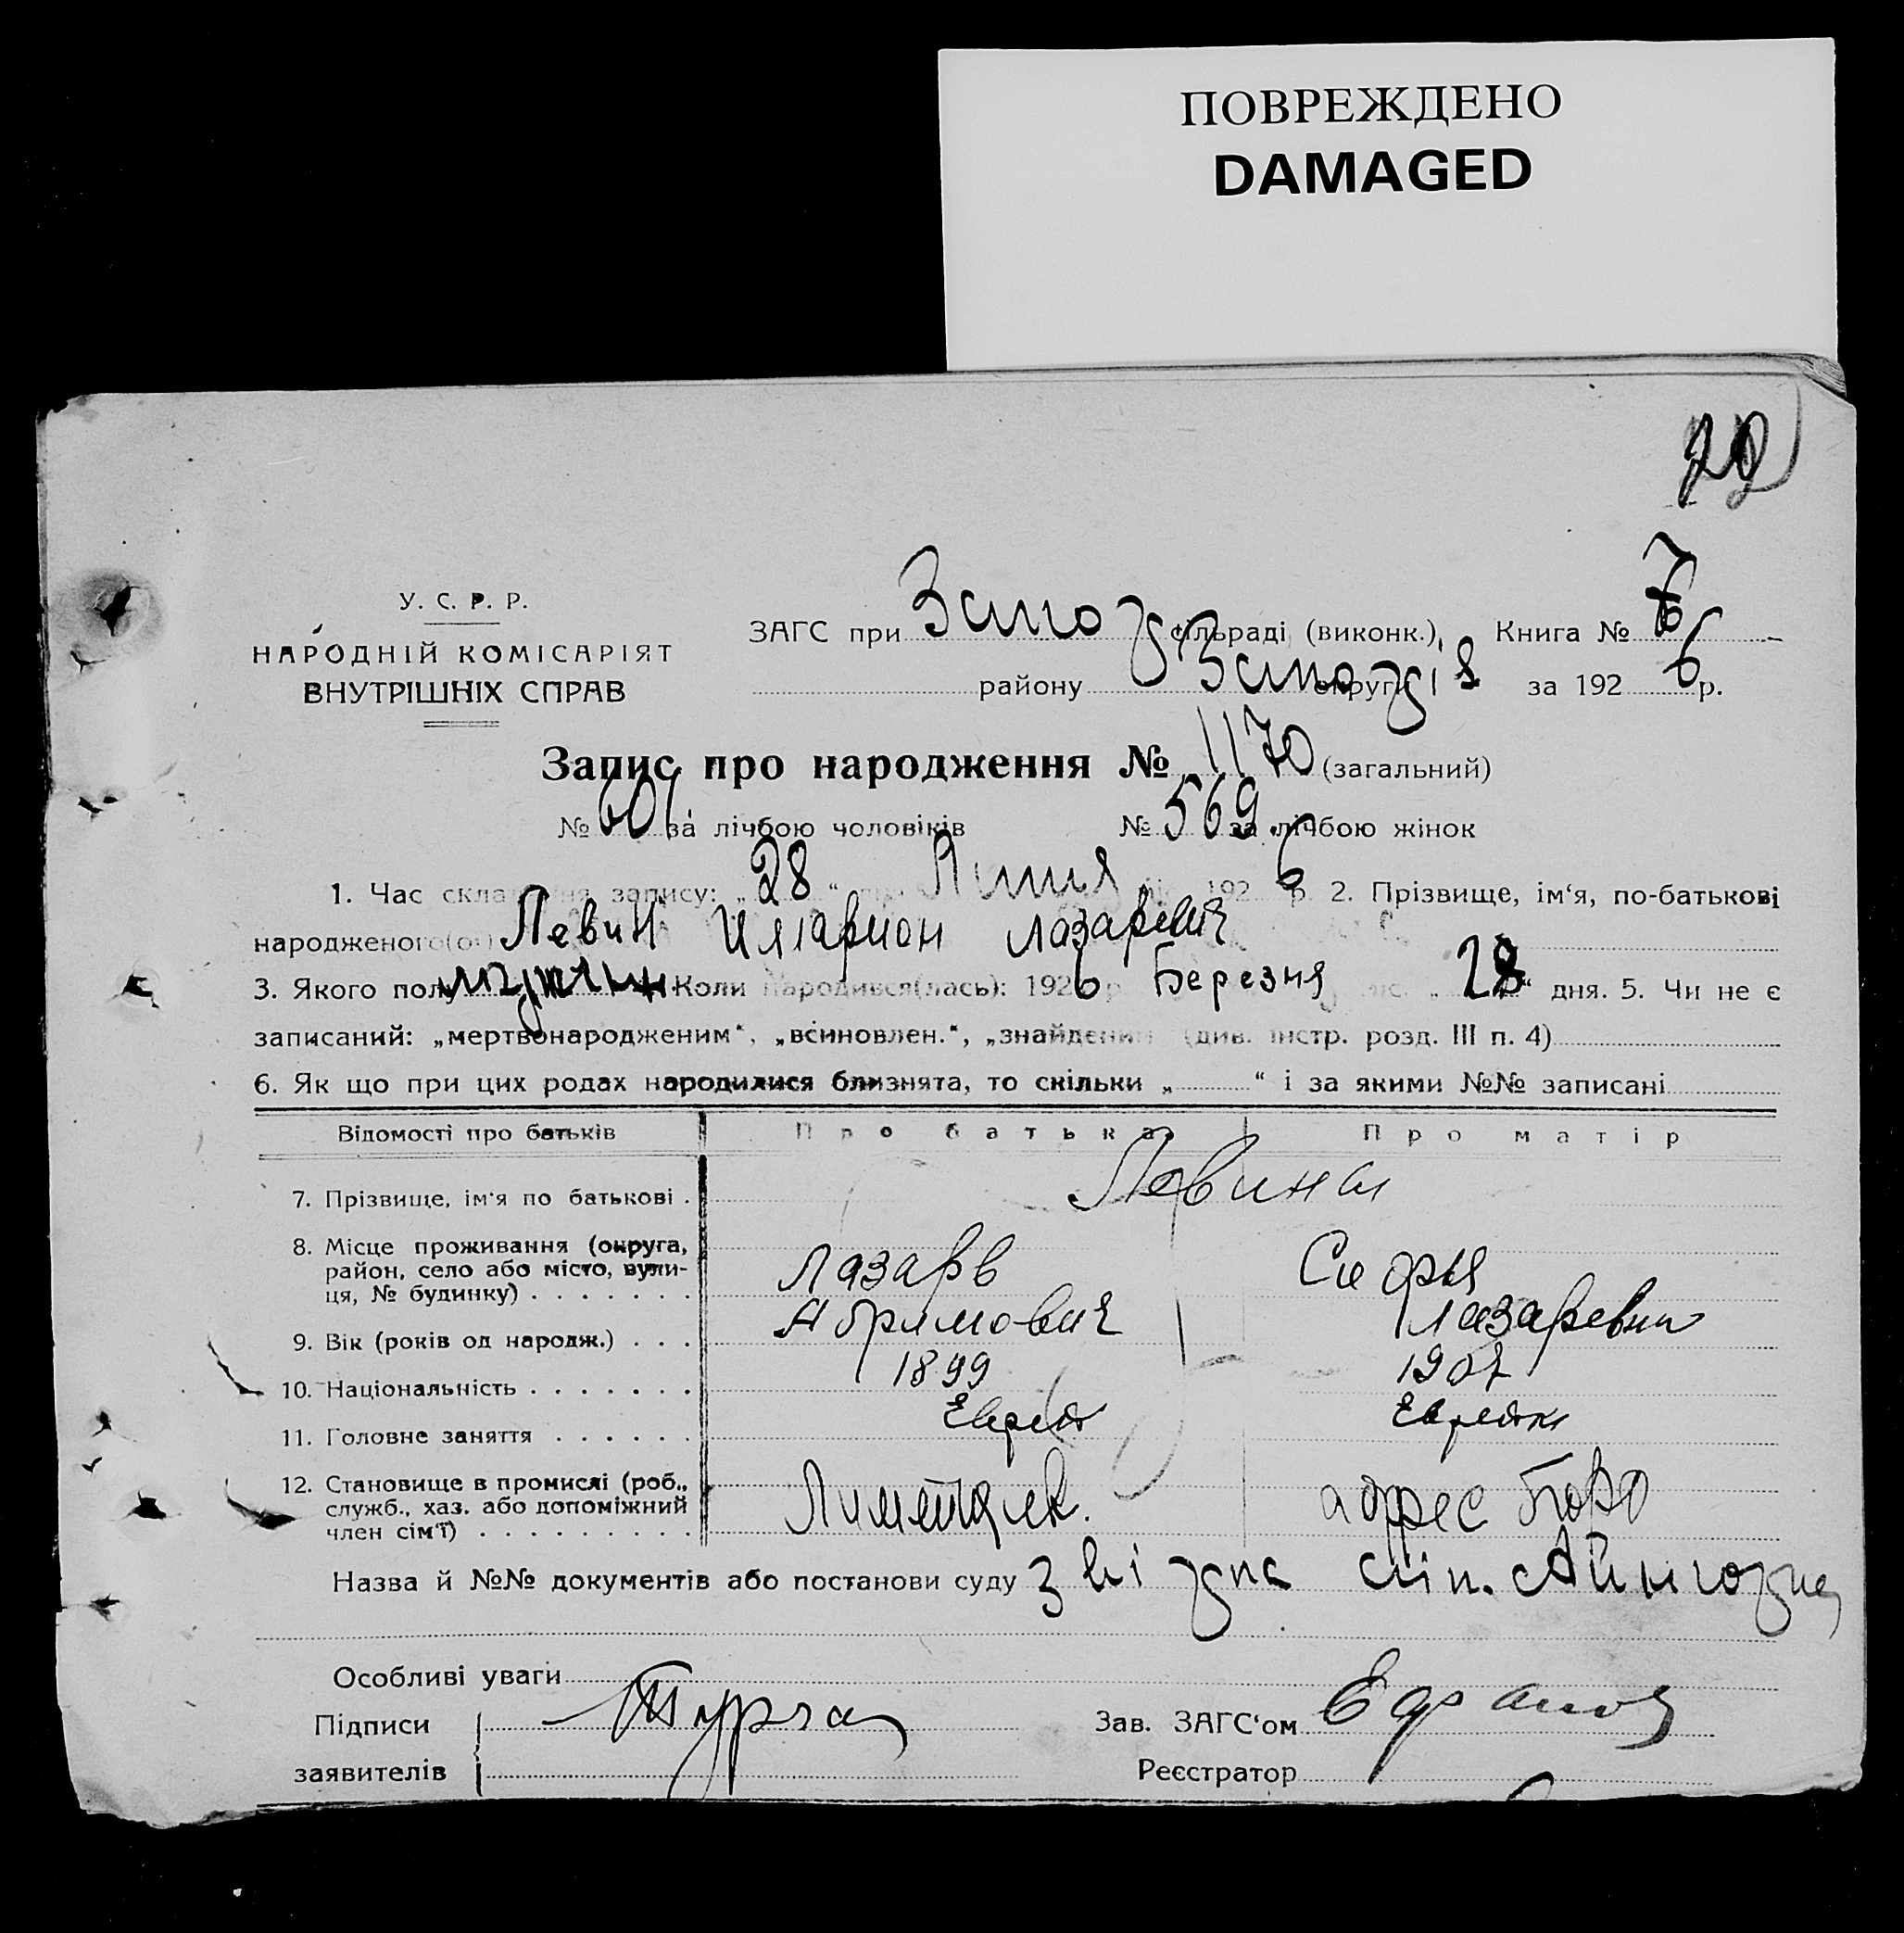 ПОВРЕЖДЕНО
DAMAGED
У. С. Р. Р.
НАРОДНІЙ КОМІСАРІЯТ
ВНУТРІШНІХ СПРАВ
ЗАГС при сільраді (виконк.) Книга №
району округи за 192 6 р.
Запис про народження № 1170 (загальний)
№ 601 за лічбою чоловіків № 569 за лічбою жінок
1. Час складання запису: „ 28 “ Липня 192 6 р. 2. Прізвище, ім‘я, по-батькові
народженого(ої) Левин Илларион Лазаревич
3. Якого полу мужчин. Коли народився(лась): 192 6 р. Березня „ 28 “ дня. 5. Чи не є
записаний: „мертвонародженим“, „всиновлен.“, „знайденим“ (див. інстр. розд. III п. 4)
6. Як що при цих родах народилися близнята, то скільки „ “ і за якими №№ записані
Відомості про батьків Про батька Про матір
7. Прізвище, ім‘я по батькові . Левины
8. Місце проживання (округа,
район, село або місто, вули-
ця, № будинку) . . . . . . . Лазарь
9. Вік (років од народж.) . . . Абрамович Лазаревна
10. Національність . . . . . . . 1899 1907
11. Головне заняття . . . . . . Еврей Еврейка
12. Становище в промислі (роб.,
служб., хаз. або допоміжний
член сім‘ї) . . . . . . . . . адрес Бюро
Назва й №№ документів або постанови суду
Особливі уваги
Підписи Зав. ЗАГС‘ом
заявителів Реєстратор